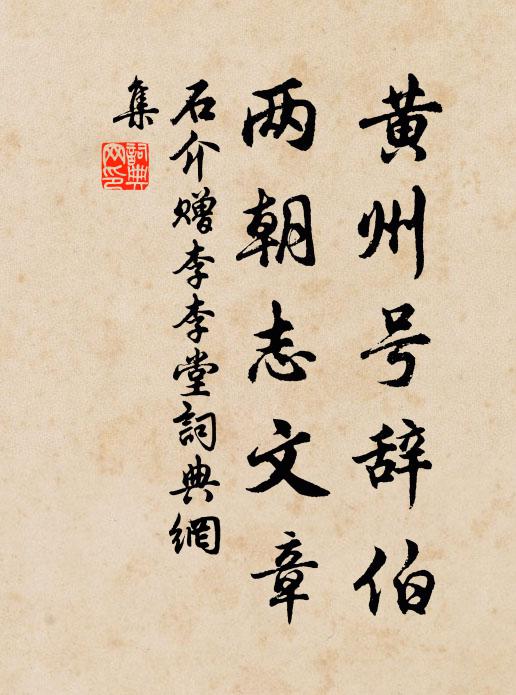 黄州号辞伯
两朝志文章
石介赠李李堂詞典網
集
詞典
网印